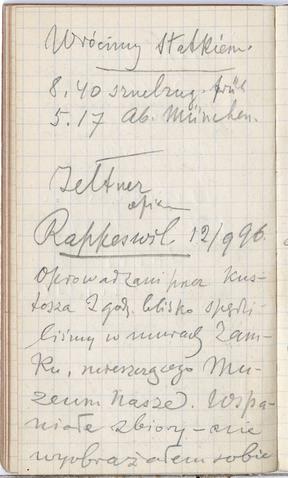 Wrócimy statkiem.
8.40 früh
5.17 Ab. München.
Zeltner
Rapperswil 12/9 96.
Oprowadzani przez kus-
tosza 2 god. blisko spędzi-
liśmy w murach Zam-
ku, mieszczącego Mu-
zeum Nasze). Wspa-
niałe zbiory – nie
wyobrażałem sobie